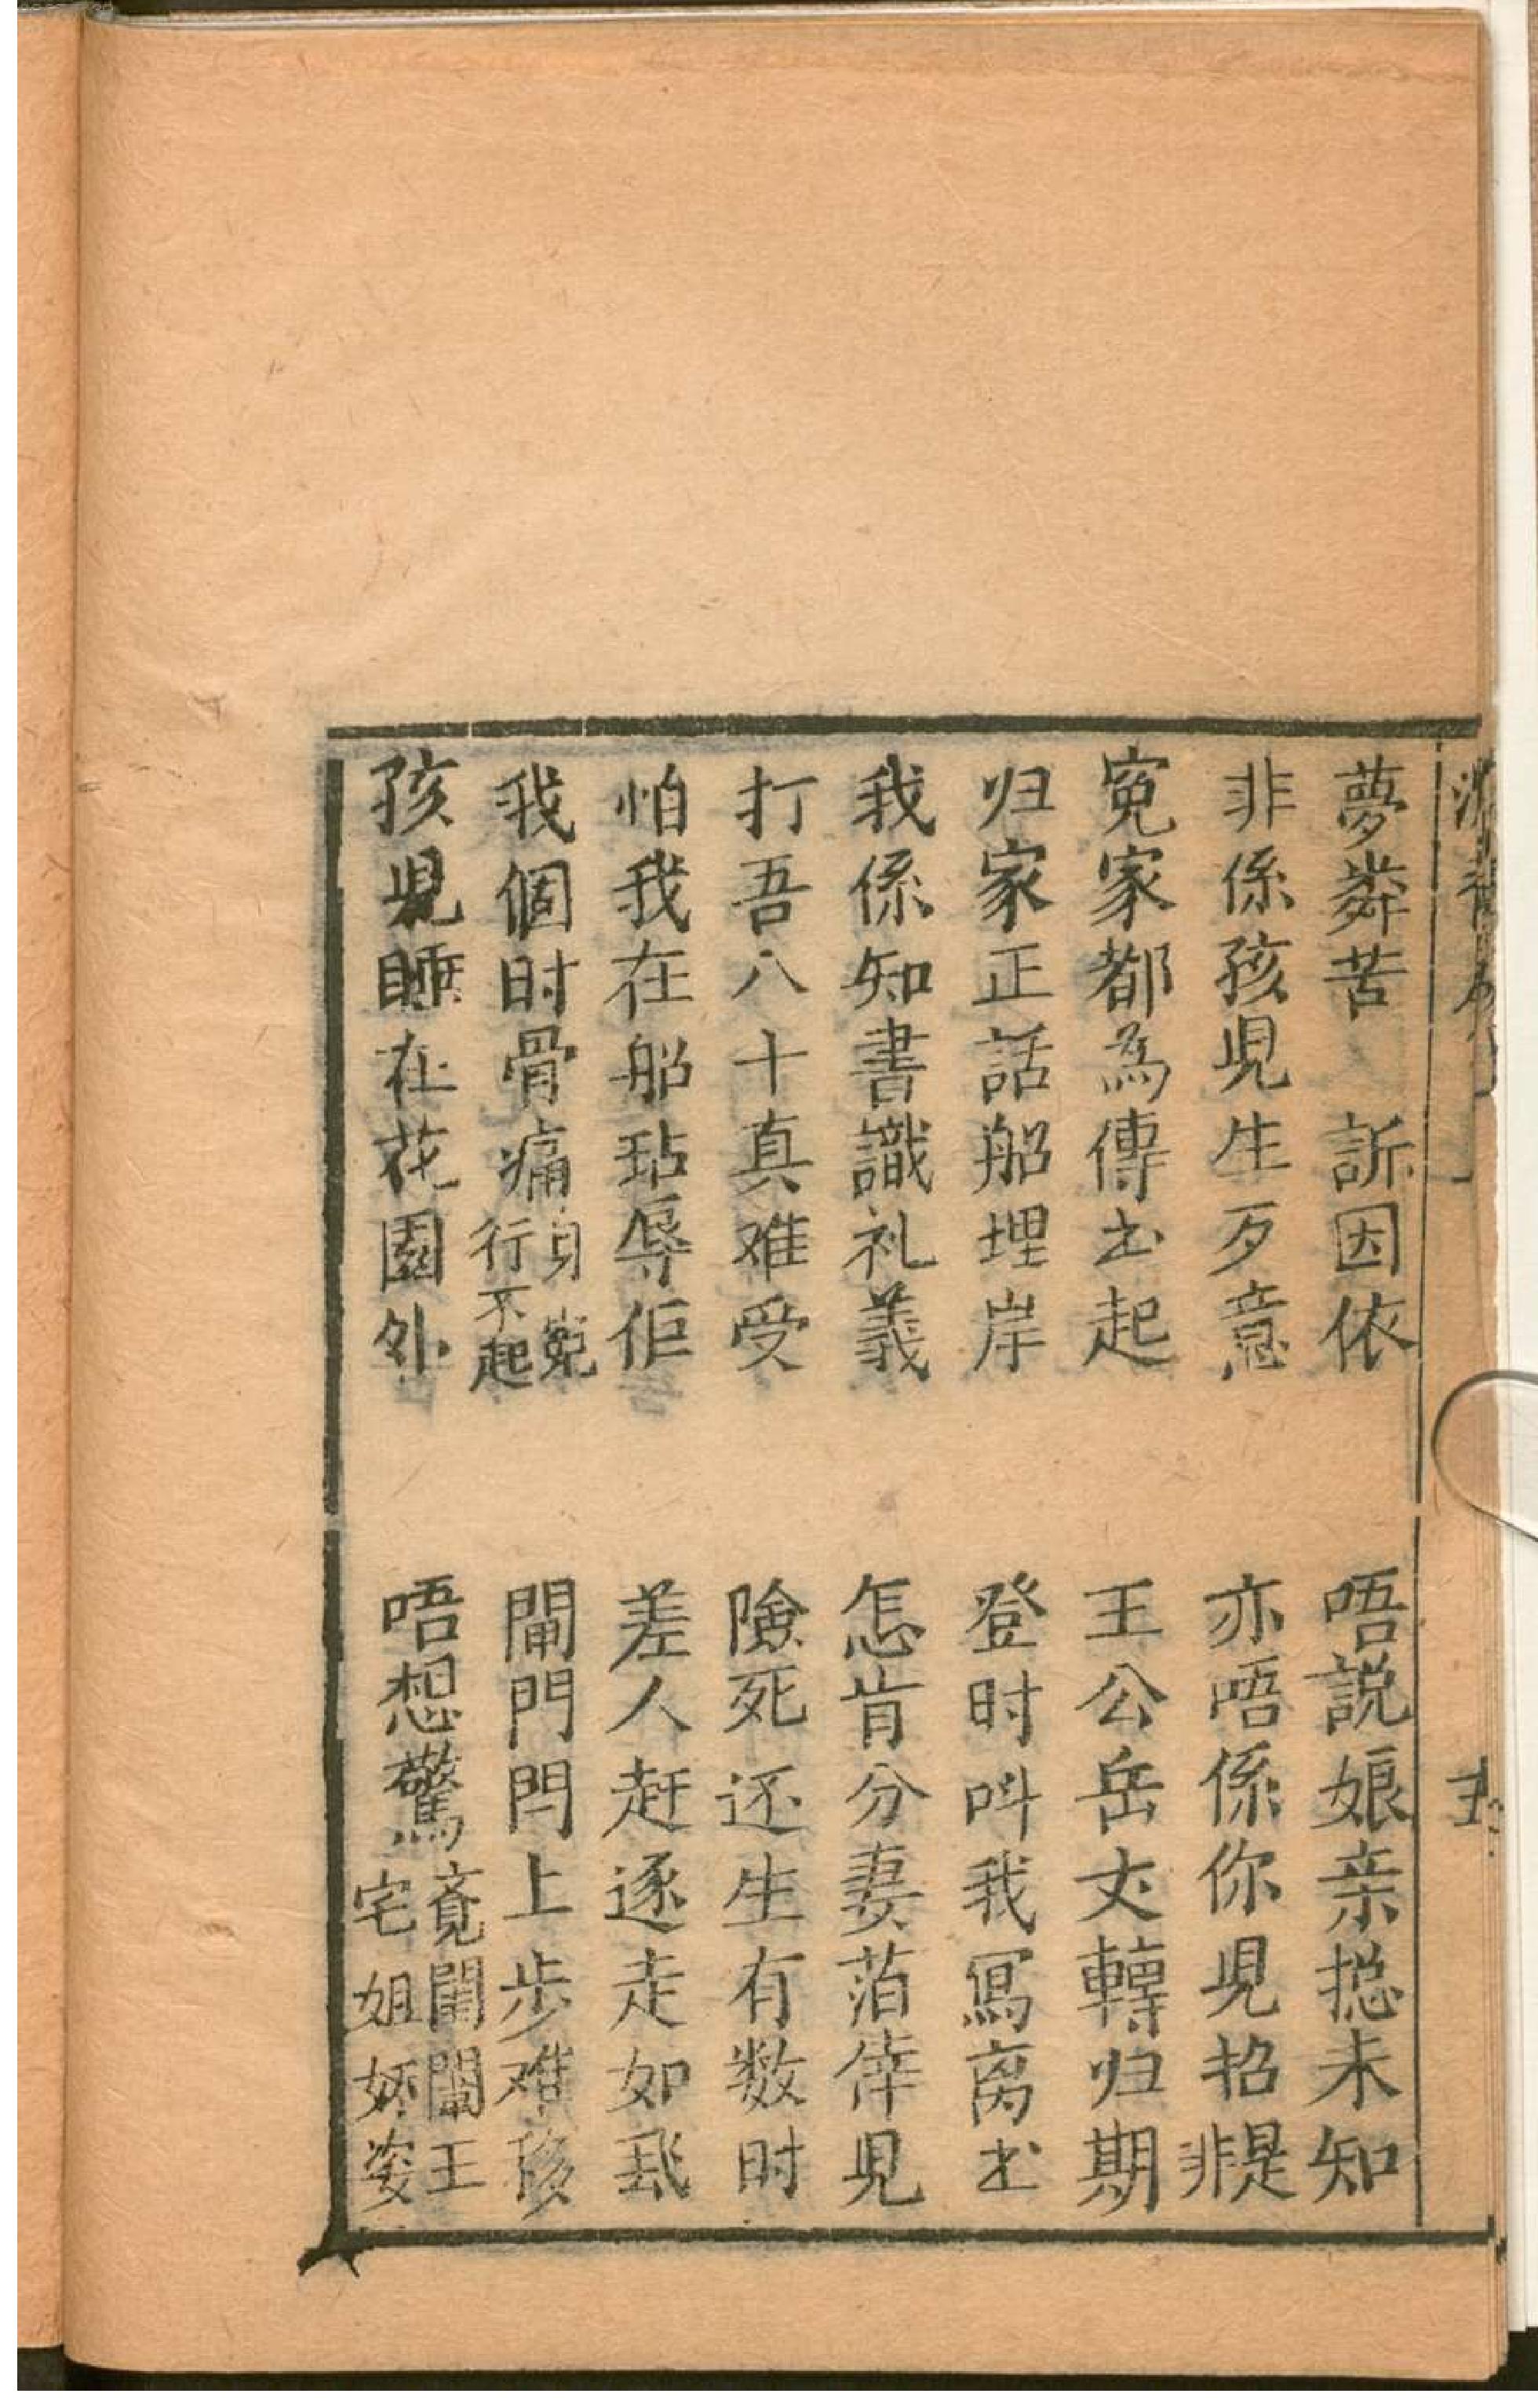 夢粦苦　訴因依　唔説娘亲揔未知
非係孩児生歹意　亦唔係你児招是非
寃家都為傳出起　王公岳丈轉归期
归家正話船埋岸　登时呌我寫离出
我係知書識礼義　怎肯分妻萡倖児
打吾八十真难受　險死还生有数时
怕我在船玷辱佢　差人赶逐走如飛
我個时骨痛身寃行不起　閙門閂上步难移
孩児睡在花園外　唔想驚竟閨閣王宅姐娇姿